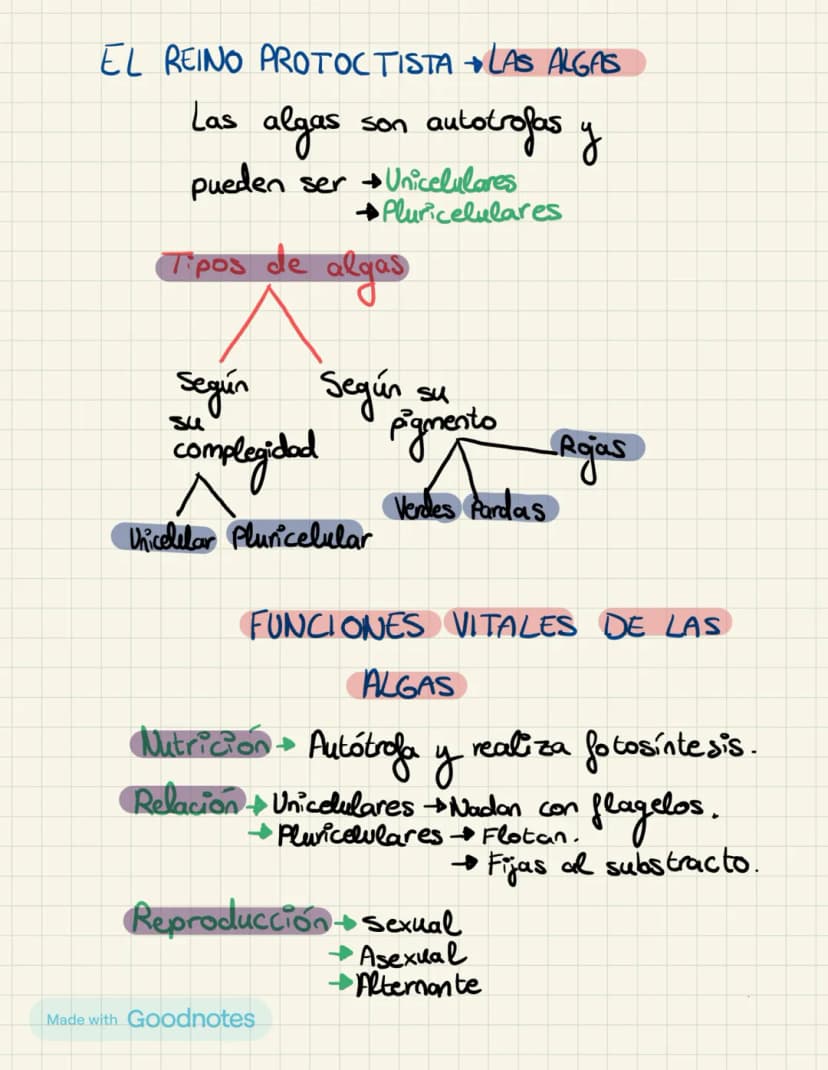 EL REINO PROTOCTISTA → LAS ALGAS
Las algas son autotrofas y
pueden ser → Unicelulares
→ Pluricelulares
Tipos de algas
Según
su
complegidad
Unicelular Pluricelular
Según su
pigmento
Rojas
Verdes Pardas
FUNCIONES VITALES DE LAS
ALGAS
Nutrición → Autótrofa y realiza fotosíntesis.
Relación → Unicelulares → Nadan con flagelos.
→ Pluricelulares → Flotan.
→ Fijas al substracto.
Reproducción → Sexual
→ Asexual
→ Alternante
Made with Goodnotes